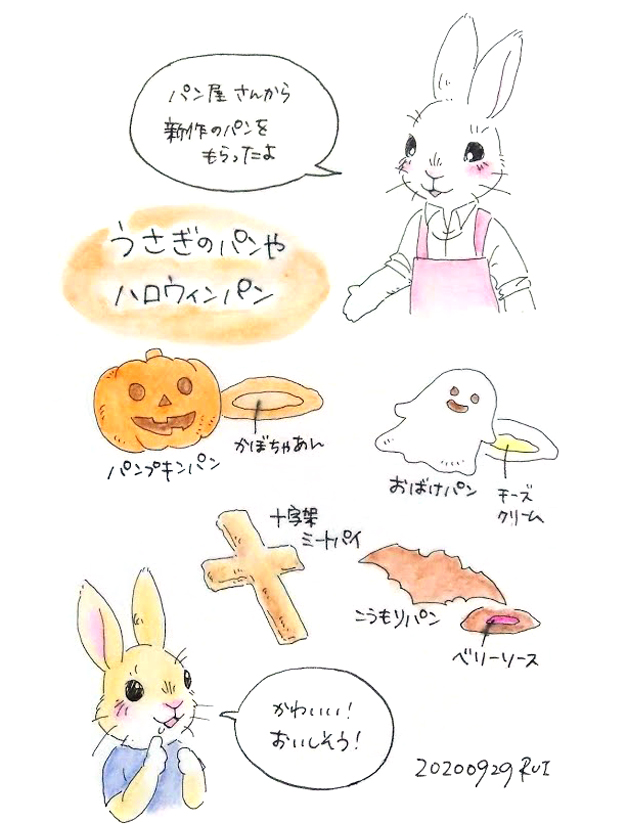 パン屋さんから
新作のパンを
もらったよ
うさぎのパンや
ハロウィンパン
かぼちゃあん
パンプキンパン
おばけパン
チーズ
クリーム
十字架
ミートパイ
こうもりパン
ベリーソース
かわいい!
おいしそう!
20200929 RUI